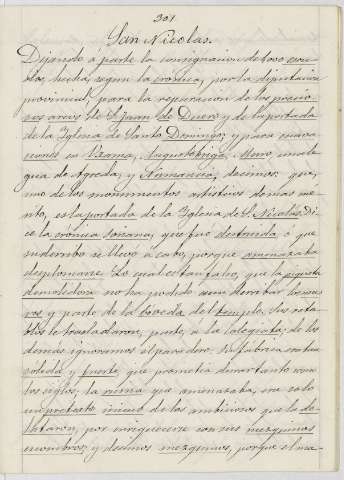 301
San Nicolas.
Dejando a parte la consignacion de
hecha, segun la crónica, por la diputacion
provincial, para la reparacion de los
arcos de S. Juan de Duero y de la portada
de la Yglesia de Santo Domingo, y para
en Uxama, Augustobriga, Muro,
de Agreda, y Numancia; decimos: que,
uno de los monumentos artisticos de mas me-
rito, es la portada de la Yglesia de S. Nicolas. Di-
ce la crónica soriana, que fue destruida ó que
su derribo se llevó á cabo, porque amenazaba
desplomarse. Lo cual es tan falso, que la piqueta
demoledora no ha podido aun derribar los mu-
ros y parte de la boveda del templo. Sus reta-
blos se trasladaron, parte, a la colegiata; de los
demas ignoramos el paradero. Su fábrica era tan
solida y fuerte, que prometia
los siglos; la ruina que amenazaba, era solo
un pretesto inicuo de los ambiciosos que la de-
, por enriquecerse con sus mezquinos
escombros; y decimos mezquinos, porque el ma-